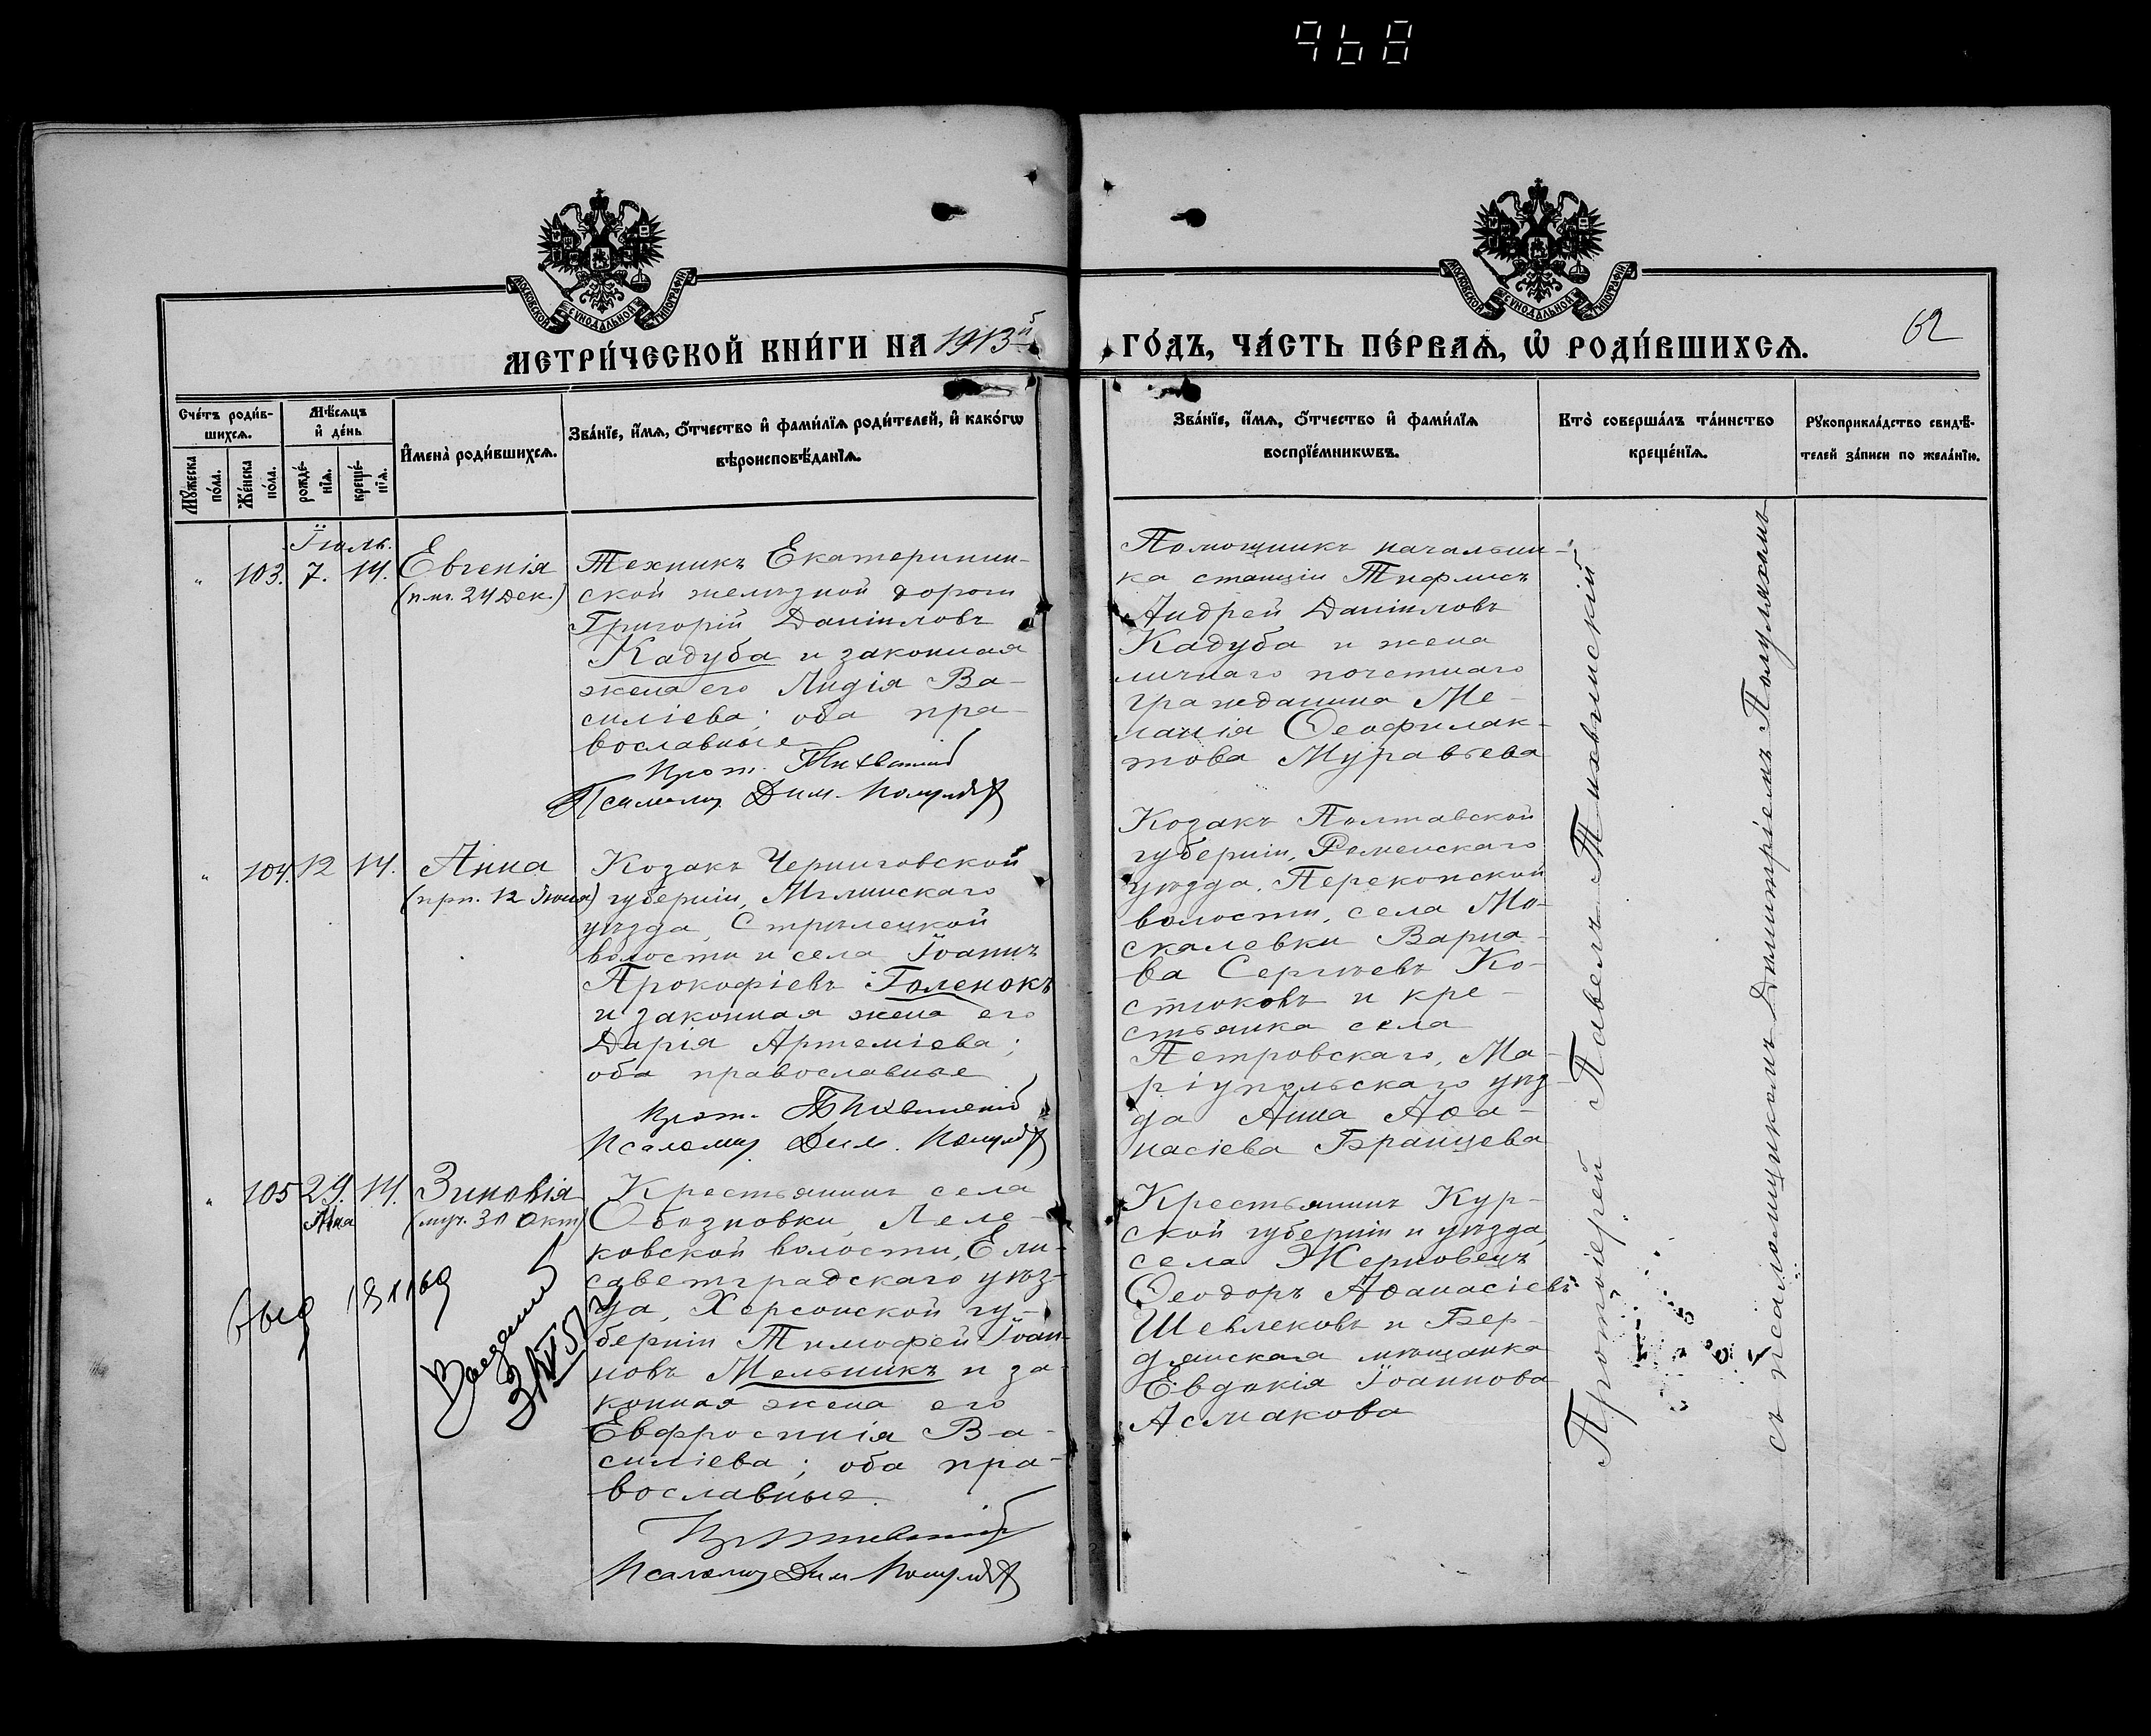 968
МОСКОВСКОЙ СѴНОДАЛЬНОЙ ТИПОГРАФІИ
МОСКОВСКОЙ СѴНОДАЛЬНОЙ ТИПОГРАФІИ
МЕТРИ́ЧЕСКОЙ КНИ́ГИ НА 1913й
ГО́ДЪ, ЧА́СТЬ ПЕ́РВАѦ, Ѿ РОДИ́ВШИХСѦ.
62
Сче́тъ роди́в-
шихсѧ.
Мѣ́сѧцъ
и҆ де́нь
Мꙋ́жеска
по́ла.
Же́нска
по́ла.
рожде́-
нїѧ.
креще́-
нїѧ.
И҆мена̀ роди́вшихсѧ.
Зва́нїе, и҆́мѧ, ѻ҆́тчество и҆ фами́лїѧ роди́телей, и҆ како́гѡ
вѣроисповѣ́данїѧ.
Зва́нїе, и҆́мѧ, ѻ҆́тчество и҆ фами́лїѧ
воспрїе́мникѡвъ.
Кто̀ соверша́лъ та́инство
креще́нїѧ.
Рꙋкоприкла́дство свидѣ́-
телей за́писи по жела́нїю.
Іюль.
" 103. 7. 14. Евгенія
(п.м. 24 Дек.)
Техникъ Екатеринин-
ской желѣзной дороги
Григорій Даніиловъ
Кадуба и законная
жена его Лидія Ва-
силіева; оба пра-
вославные
Прот. Тихвинскій
Псаломщ. Дим. Полулях
Помощникъ начальни-
ка станціи Тифлисъ
Андрей Даніиловъ
Кадуба и жена
личнаго почетнаго
гражданина Ме-
ланія Ѳеофилак-
това Муравьева
" 104. 12 14. Анна
(прп. 12 Іюня)
Козакъ Черниговской
губерніи, Мглинскаго
уѣзда, Стрѣлецкой
волости и села Іоаннъ
Прокофіевъ Голенокъ
и законная жена его
Дарія Артеміева;
оба православные
Прот. Тихвинскій
Псаломщ. Дим. Полулях
Козакъ Полтавской
губерніи, Роменскаго
уѣзда, Перекопской
волости, села Мо-
скалевки Варна-
ва Сергѣевъ Ко-
стюковъ и кре-
стьянка села
Петровскаго, Ма-
ріупольскаго уѣз-
да Анна Аѳа-
насіева Бранцева
" 105 29. 14. Зиновія
Мая (муч. 31 Окт)
Крестьянинъ села
Обозновки, Леле-
ковской волости, Ели-
саветградскаго уѣз-
да, Херсонской гу-
берніи Тимофей Іоан-
новъ Мельникъ и за-
конная жена его
Евфросинія Ва-
силіева; оба пра-
вославные.
Псаломщ. Дим. Полулях
Крестьянинъ Кур-
ской губерніи и уѣзда,
села Жерновецъ
Ѳеодоръ Аѳанасіевъ
Шевлековъ и Бер-
дянская мѣщанка
Евдокія Іоаннова
Асмакова
Протоіерей Павелъ Тихвинскій
съ псаломщикомъ Димитріемъ Полуляхомъ